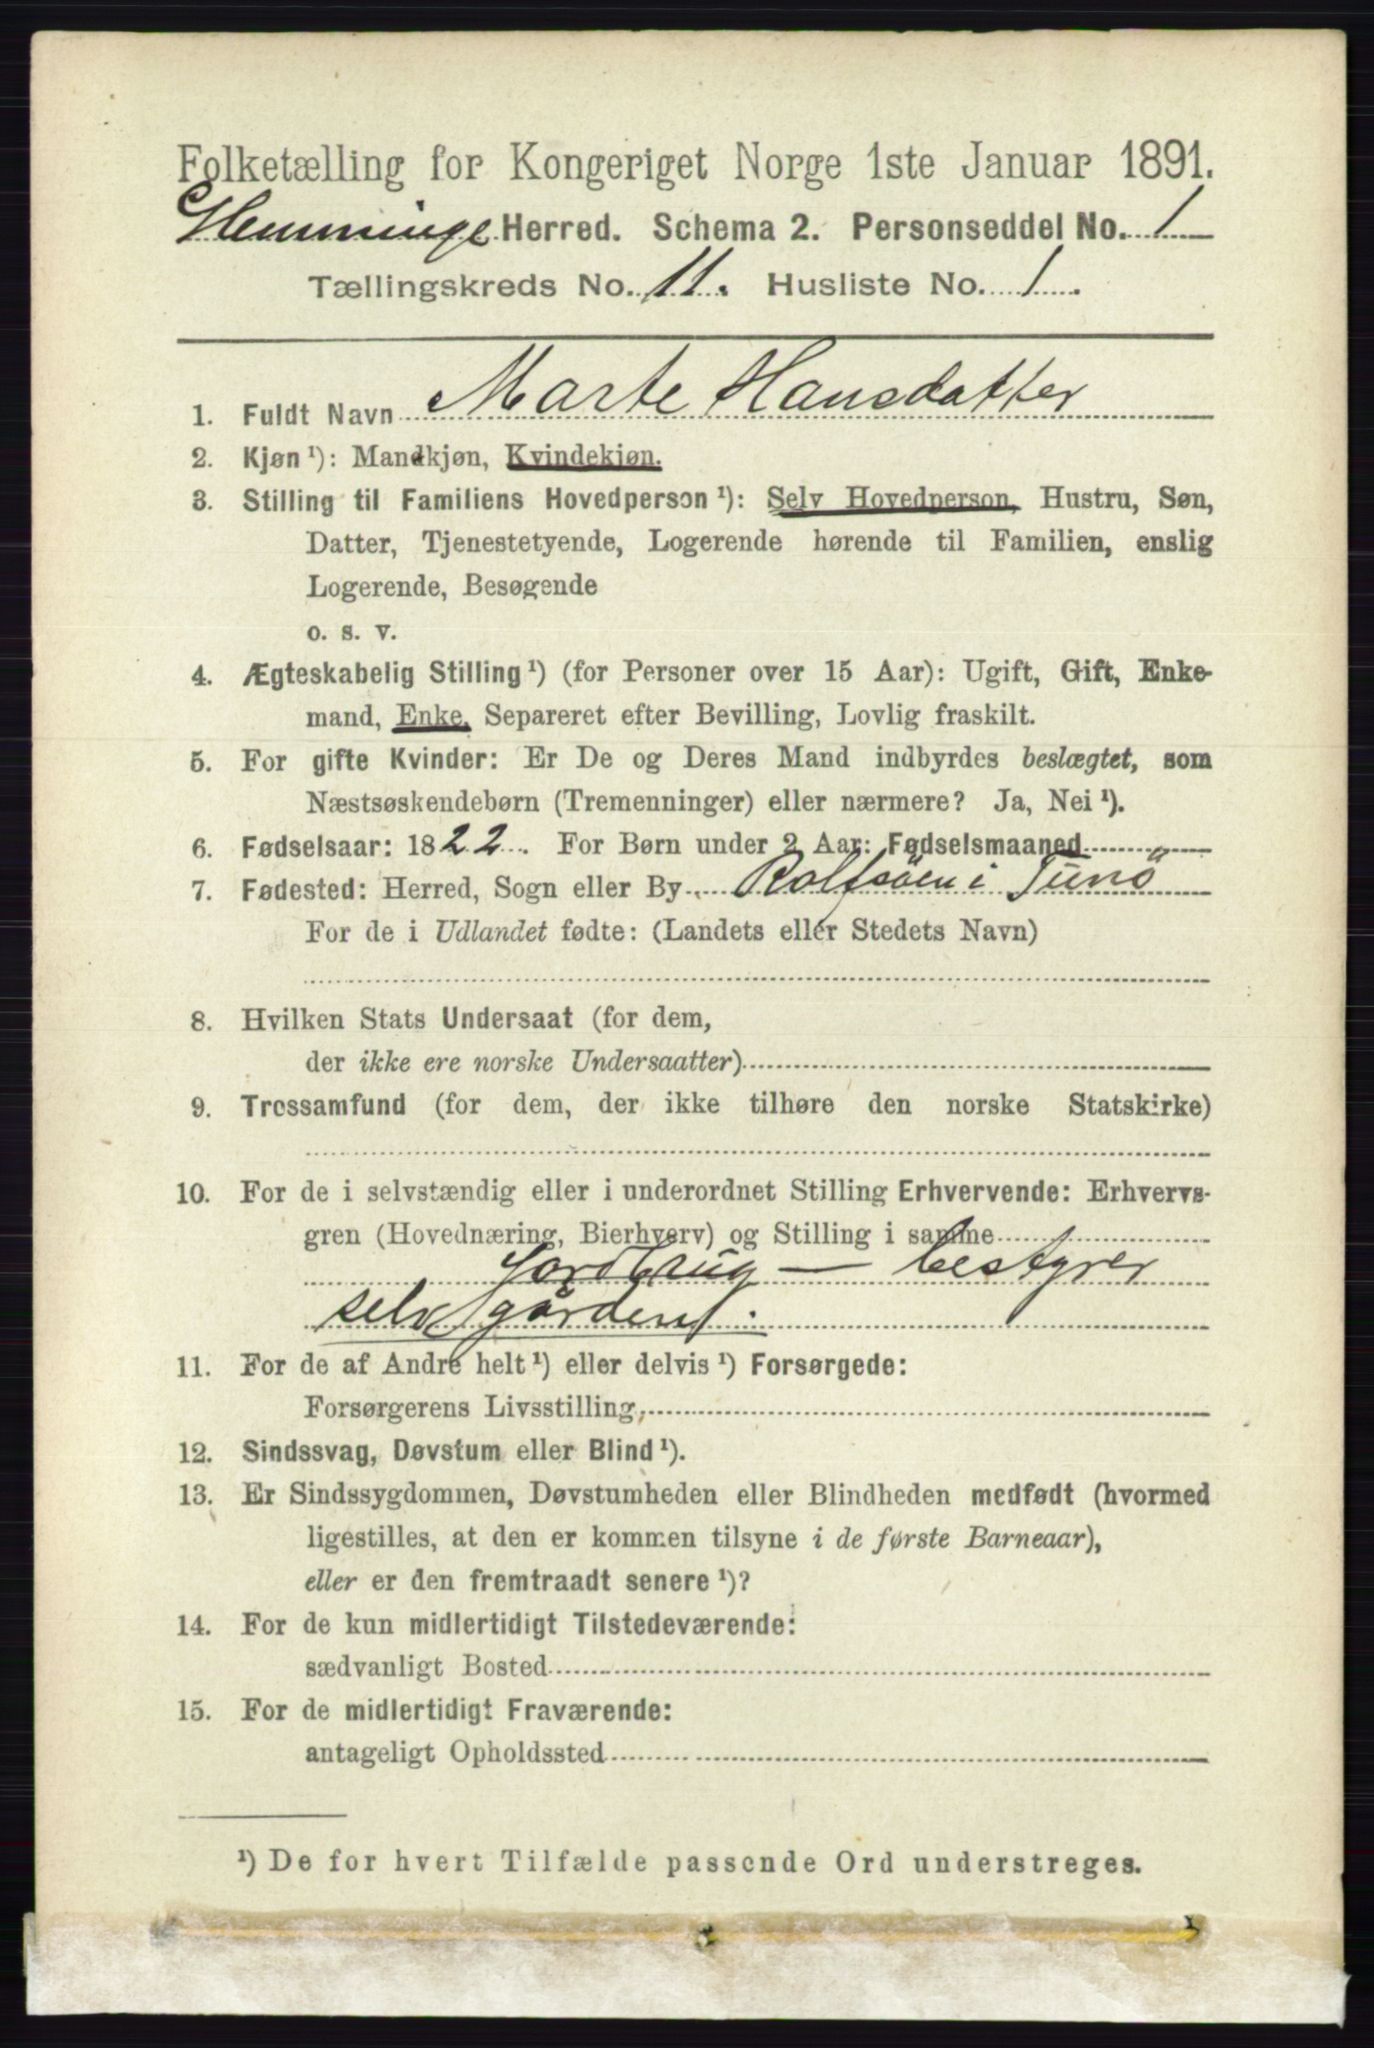 Folketælling for Kongeriget Norge 1ste Januar 1891.
Glemminge Herred. Schema 2. Personseddel No. 1
Tællingskreds No. 11. Husliste No. 1.
1. Fuldt Navn Marte Hansdatter
2. Kjøn ¹): Mandkjøn, Kvindekjøn.
3. Stilling til Familiens Hovedperson ¹): Selv Hovedperson, Hustru, Søn,
Datter, Tjenestetyende, Logerende hørende til Familien, enslig
Logerende, Besøgende
o. s. v.
4. Ægteskabelig Stilling ¹) (for Personer over 15 Aar): Ugift, Gift, Enke-
mand, Enke, Separeret efter Bevilling, Lovlig fraskilt.
5. For gifte Kvinder: Er De og Deres Mand indbyrdes beslægtet, som
Næstsøskendebørn (Tremenninger) eller nærmere? Ja, Nei ¹).
6. Fødselsaar: 1822. For Børn under 2 Aar: Fødselsmaaned
7. Fødested: Herred, Sogn eller By Rolfsöen i Tunö
For de i Udlandet fødte: (Landets eller Stedets Navn)
8. Hvilken Stats Undersaat (for dem,
der ikke ere norske Undersaatter)
9. Trossamfund (for dem, der ikke tilhøre den norske Statskirke)
10. For de i selvstændig eller i underordnet Stilling Erhvervende: Erhvervs-
gren (Hovednæring, Bierhverv) og Stilling i samme
Jordbrug — bestyrer
selv gården.
11. For de af Andre helt ¹) eller delvis ¹) Forsørgede:
Forsørgerens Livsstilling,
12. Sindssvag, Døvstum eller Blind ¹).
13. Er Sindssygdommen, Døvstumheden eller Blindheden medfødt (hvormed
ligestilles, at den er kommen tilsyne i de første Barneaar),
eller er den fremtraadt senere ¹)?
14. For de kun midlertidigt Tilstedeværende:
sædvanligt Bosted
15. For de midlertidigt Fraværende:
antageligt Opholdssted
¹) De for hvert Tilfælde passende Ord understreges.